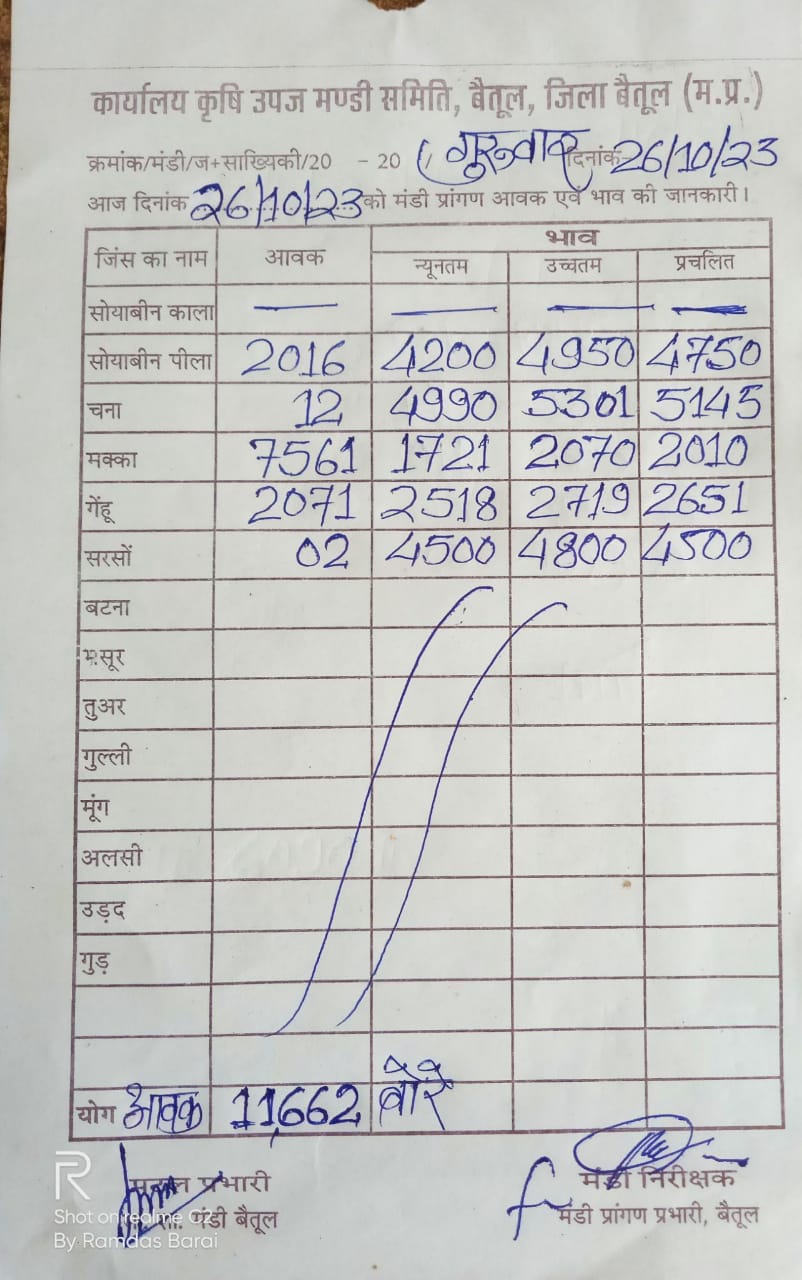 कार्यालय कृषि उपज मण्डी समिति, बैतूल, जिला बैतूल (म.प्र.)
क्रमांक/मंडी/ज+साख्यिकी/20 - 20 / गुरुवार दिनांक 26/10/23
आज दिनांक 26/10/23 को मंडी प्रांगण आवक एवं भाव की जानकारी।
भाव
जिंस का नाम आवक न्यूनतम उच्चतम प्रचलित
सोयाबीन काला — — — —
सोयाबीन पीला 2016 4200 4950 4750
चना 12 4990 5301 5145
मक्का 7561 1721 2070 2010
गेंहू 2071 2518 2719 2651
सरसों 02 4500 4800 4500
बटना
मसूर
तुअर
गुल्ली
मूंग
अलसी
उड़द
गुड़
योग आवक 11,662 बोरे
प्रभारी मंडी निरीक्षक
मंडी बैतूल मंडी प्रांगण प्रभारी, बैतूल
R
Shot on realme C2
By Ramdas Barai